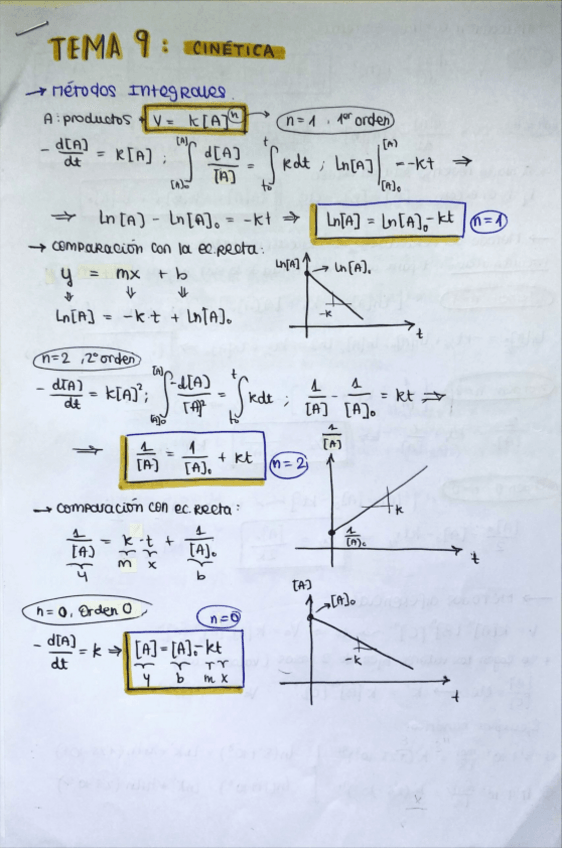 TEMA 9: CINÉTICA
→ Métodos Integrales.
A: productos V = k[A]ⁿ → n=1, 1er orden
- d[A]/dt = k[A] ; ∫[A]₀^[A] d[A]/[A] = ∫t₀^t kdt ; Ln[A] |[A]₀^[A] = -kt ⇒
⇒ Ln[A] - Ln[A]₀ = -kt ⇒ Ln[A] = Ln[A]₀ - kt n=1
→ comparación con la ec. recta:
y = mx + b
Ln[A] = -k·t + Ln[A]₀
Ln[A] → Ln[A]₀
-k
t
n=2, 2º orden
- d[A]/dt = k[A]²; ∫[A]₀^[A] -d[A]/[A]² = ∫t₀^t kdt ; 1/[A] - 1/[A]₀ = kt ⇒
⇒ 1/[A] = 1/[A]₀ + kt n=2
1/[A]
k
1/[A]₀
t
→ comparación con ec. recta:
1/[A] = k·t + 1/[A]₀
y m x b
n=0, Orden 0
n=0
- d[A]/dt = k ⇒ [A] = [A]₀ - kt
y b m x
[A]
→ [A]₀
-k
t